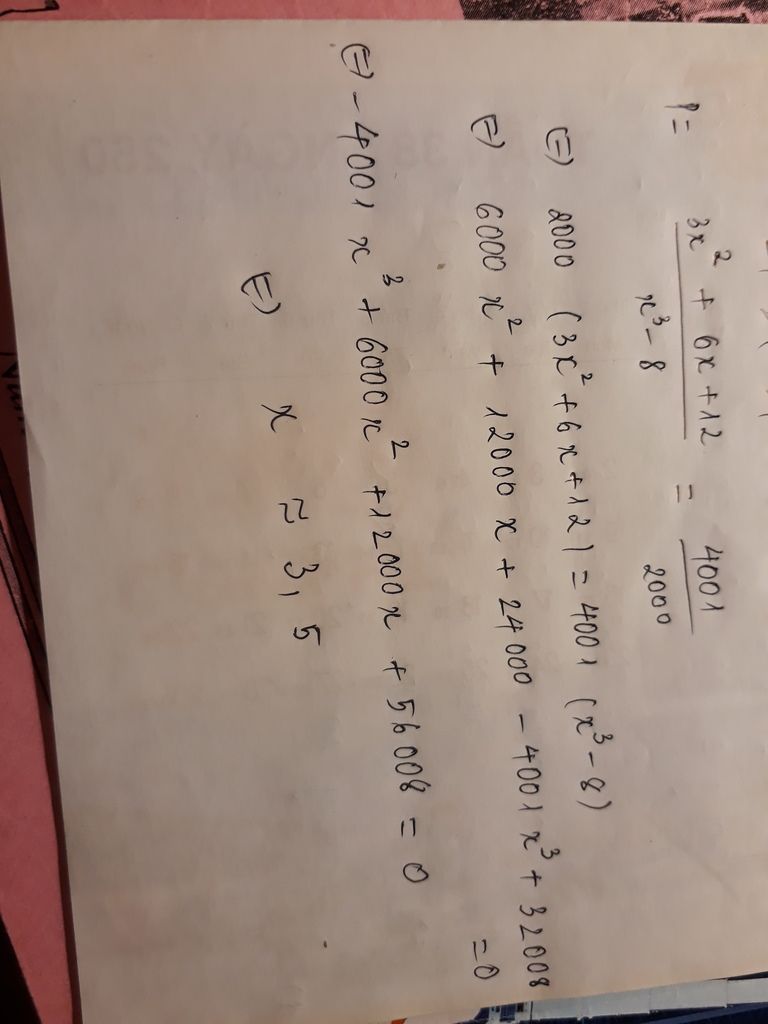 P = 3x² + 6x + 12 / x³ - 8 = 4001 / 2000
(=) 2000 (3x² + 6x + 12) = 4001 (x³ - 8)
(=) 6000x² + 12000x + 24000 - 4001x³ + 32008 = 0
(=) - 4001x³ + 6000x² + 12000x + 56008 = 0
(=) x ≈ 3,5